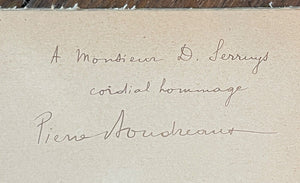 A Monsieur D. Serruys
cordial hommage
Pierre Boudreaux